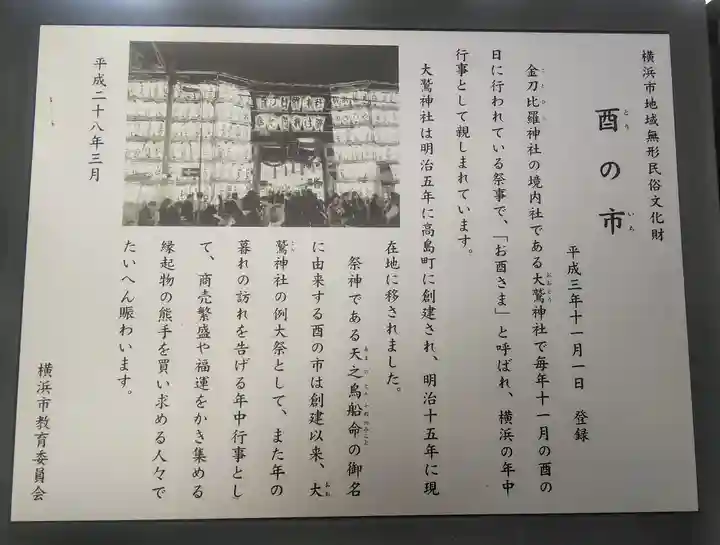 横浜市地域無形民俗文化財
酉の市
とり いち
平成三年十一月一日 登録
金刀比羅神社の境内社である大鷲神社で毎年十一月の酉の
日に行われている祭事で、「お酉さま」と呼ばれ、横浜の年中
行事として親しまれています。
大鷲神社は明治五年に高島町に創建され、明治十五年に現
在地に移されました。
祭神である天之鳥船命の御名
に由来する酉の市は創建以来、大
鷲神社の例大祭として、また年の
暮れの訪れを告げる年中行事とし
て、商売繁盛や福運をかき集める
縁起物の熊手を買い求める人々で
たいへん賑わいます。
平成二十八年三月
横浜市教育委員会